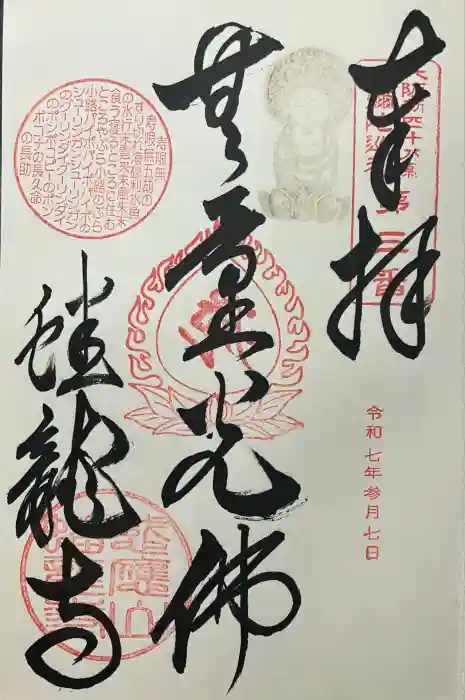 奉拝
大阪新四十八願所
第三番
令和七年参月七日
無量光佛
寿限無
寿限無五劫の
すり切れ海砂利水魚
の水行末雲来末風来末
食う寝るところに住む
ところやぶら小路のぶら
小路パイポパイポパイポの
シューリンガンシューリンガン
のグーリンダイグーリンダイ
のポンポコピーのポン
ポコナの長久命
の長助
蟠龍寺